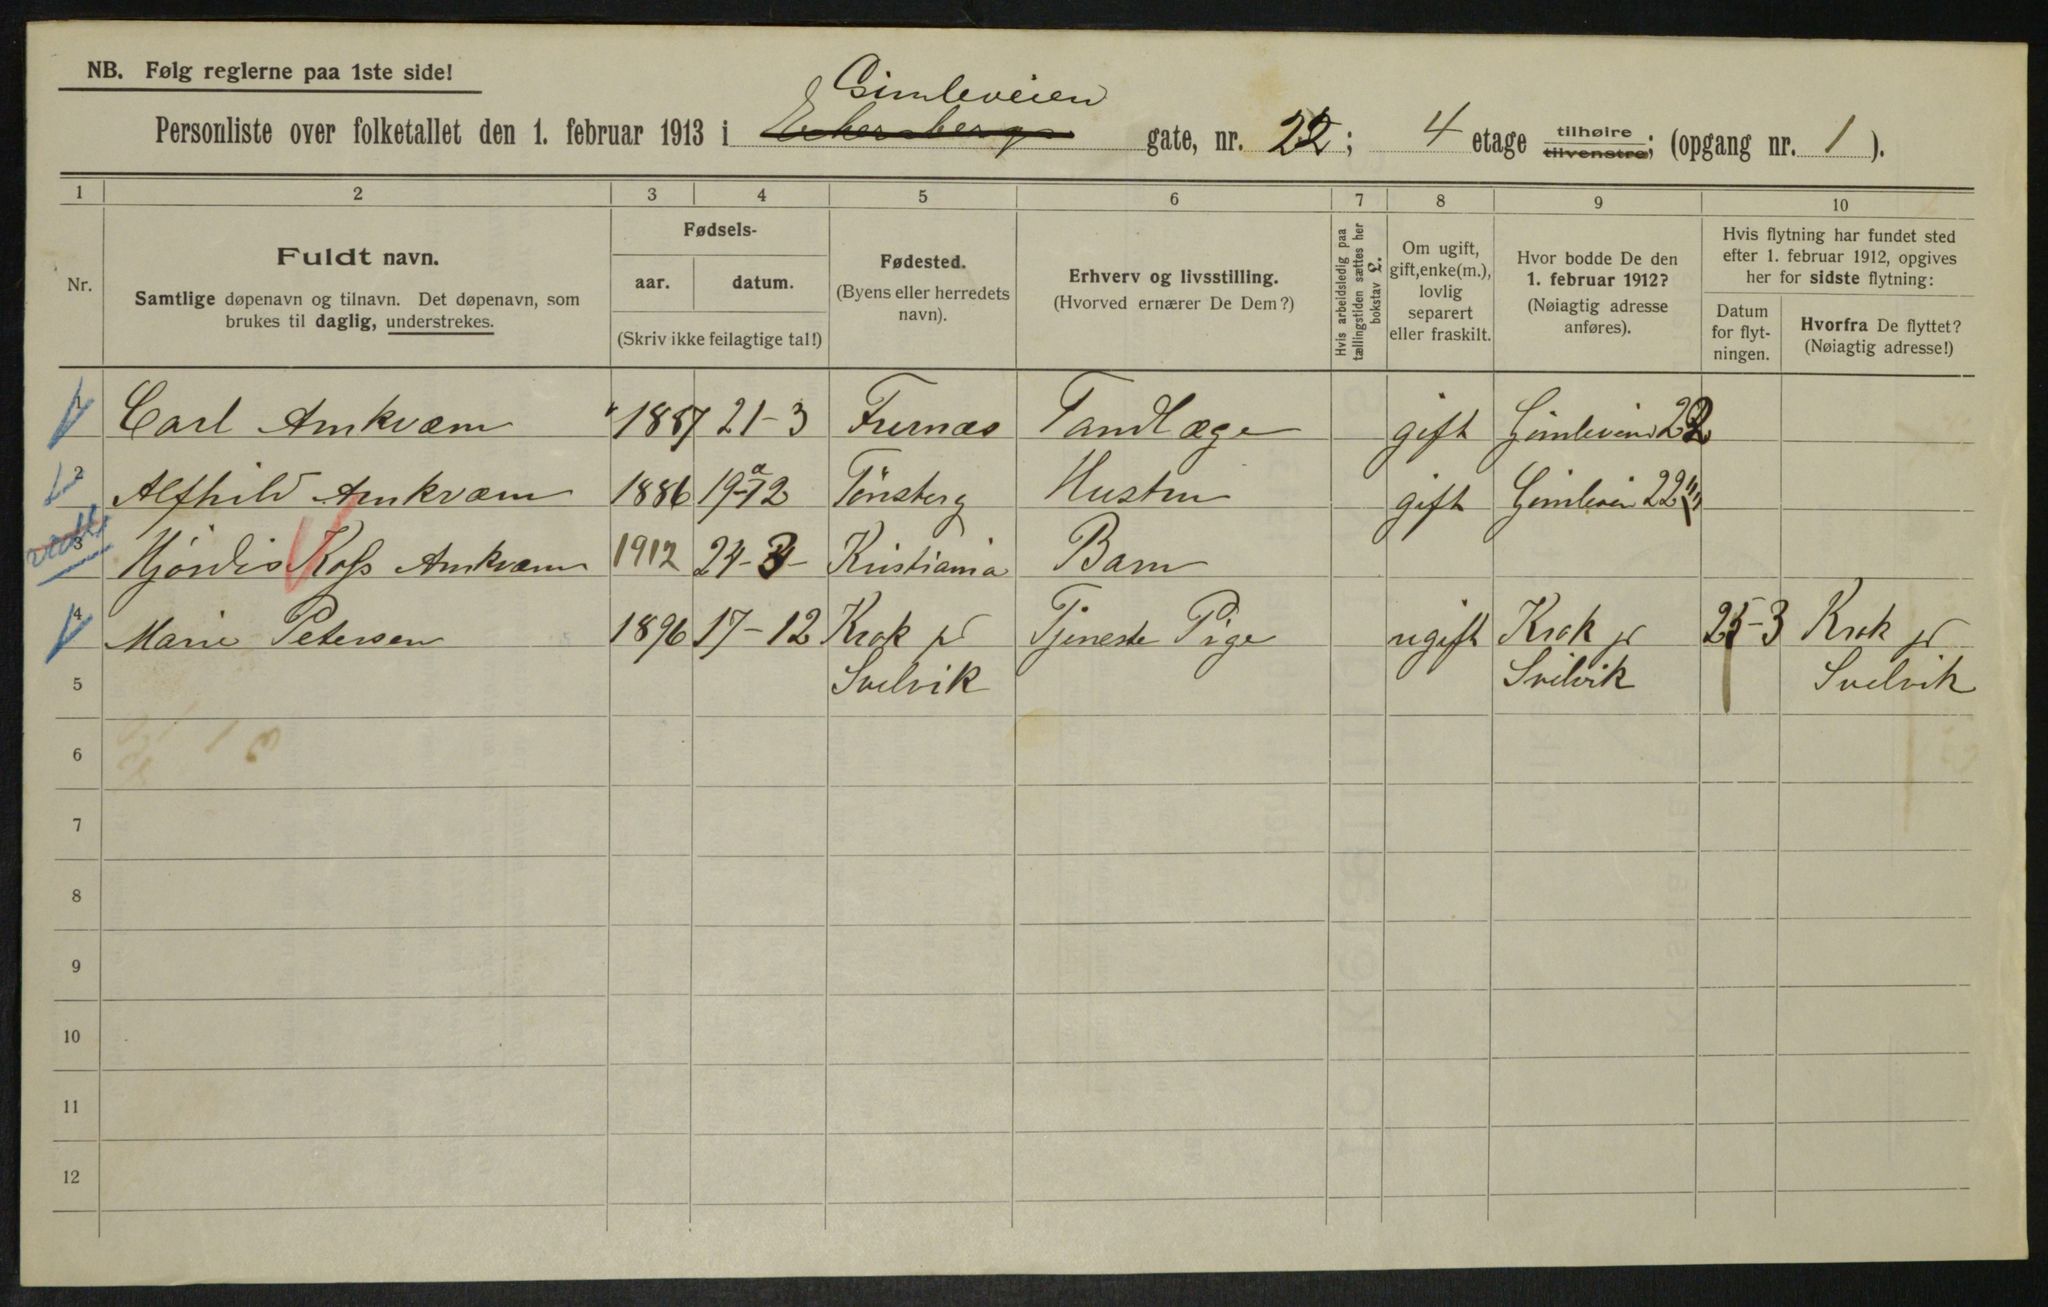 NB. Følg reglerne paa 1ste side!
Gimleveien
Personliste over folketallet den 1. februar 1913 i Eckersbergs gate, nr. 22; 4 etage tilhøire tilvenstre; (opgang nr. 1).
1 2 3 4 5 6 7 8 9 10
Nr.
Fuldt navn.
Samtlige døpenavn og tilnavn. Det døpenavn, som
brukes til daglig, understrekes.
Fødsels-
aar. datum.
(Skriv ikke feilagtige tal!)
Fødested.
(Byens eller herredets
navn).
Erhverv og livsstilling.
(Hvorved ernærer De Dem?)
Hvis arbeidsledig paa
tællingstiden sættes her
bokstav l.
Om ugift,
gift, enke(m.),
lovlig
separert
eller fraskilt.
Hvor bodde De den
1. februar 1912?
(Nøiagtig adresse
anføres).
Hvis flytning har fundet sted
efter 1. februar 1912, opgives
her for sidste flytning:
Datum
for flyt-
ningen.
Hvorfra De flyttet?
(Nøiagtig adresse!)
1 Carl Amkvæm 1887 21-3 Furnæs Tandlæge gift Gimleveien 22
2 Alfhild Amkvæm 1886 19-12 Tønsberg Hustru gift Gimleveien 22
3 Hjørdis Koss Amkvæm 1912 24-3- Kristiania Barn
4 Marie Petersen 1896 17-12 Krok pr Tjeneste Pige ugift Krok pr 25-3 Krok pr
5 Svelvik Svelvik Svelvik
6
7
8
9
10
11
12